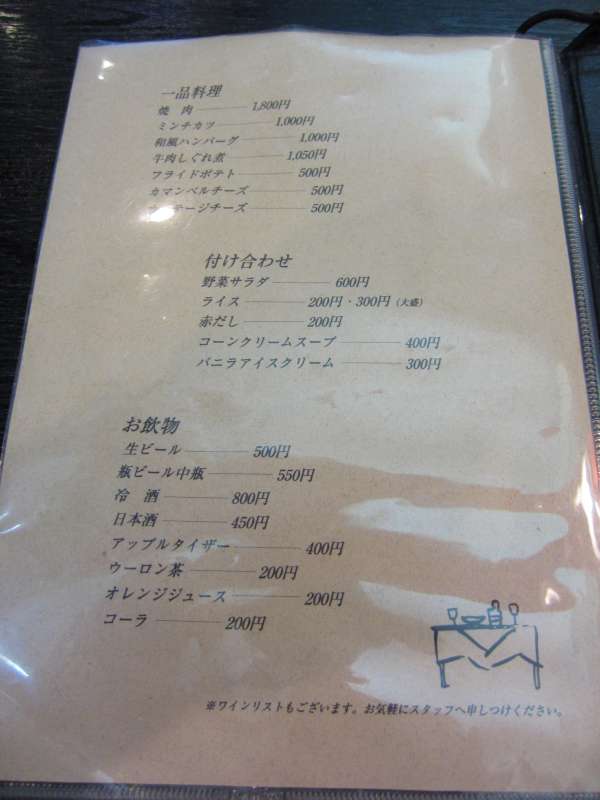 一品料理
焼 肉 1,800円
ミンチカツ 1,000円
和風ハンバーグ 1,000円
牛肉しぐれ煮 1,050円
フライドポテト 500円
カマンベルチーズ 500円
テージチーズ 500円
付け合わせ
野菜サラダ 600円
ライス 200円・300円（大盛）
赤だし 200円
コーンクリームスープ 400円
バニラアイスクリーム 300円
お飲物
生ビール 500円
瓶ビール中瓶 550円
冷 酒 800円
日本酒 450円
アップルタイザー 400円
ウーロン茶 200円
オレンジジュース 200円
コーラ 200円
※ワインリストもございます。お気軽にスタッフへ申しつけください。